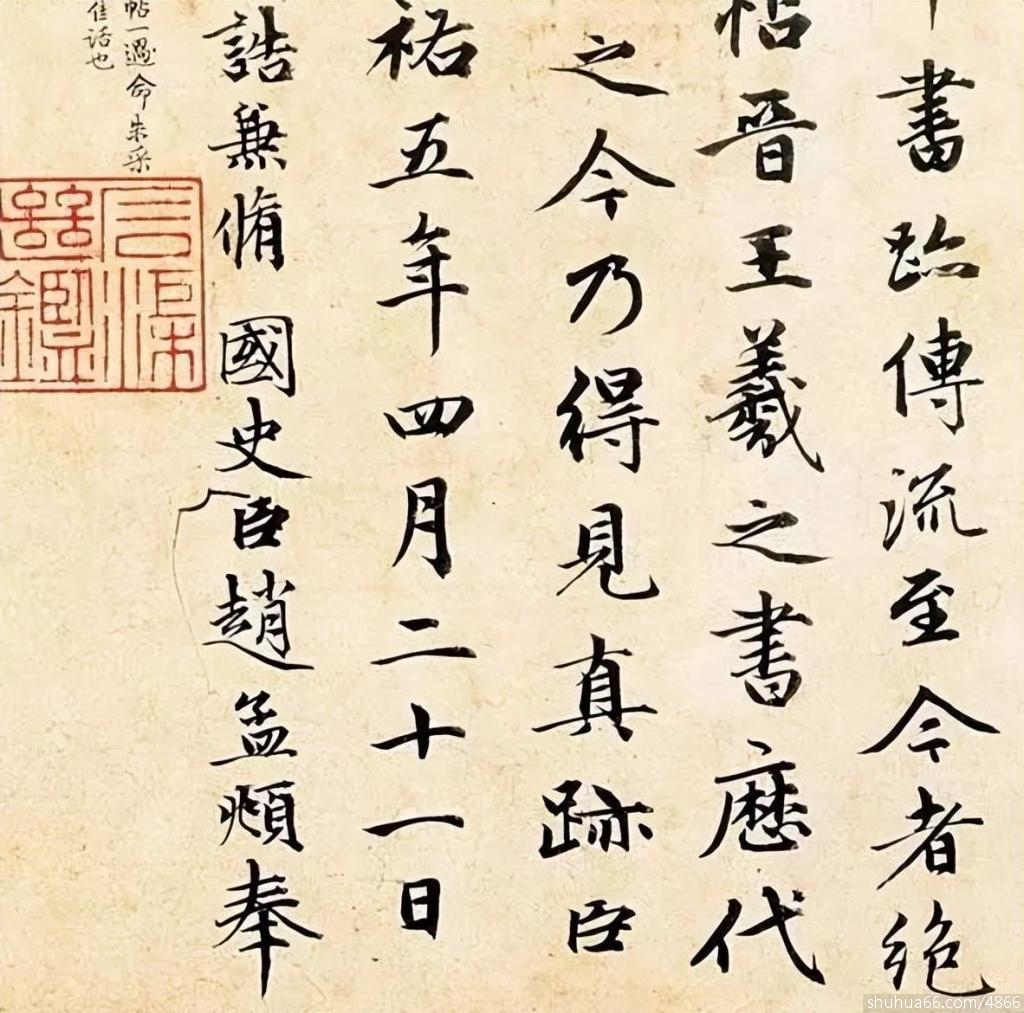 書臨傳流至今者絕
帖晉王羲之書歷代
之今乃得見真跡臣
祐五年四月二十一日
誥兼脩國史臣趙孟頫奉
帖一過命朱采
佳話也
shuhua66.com/4866